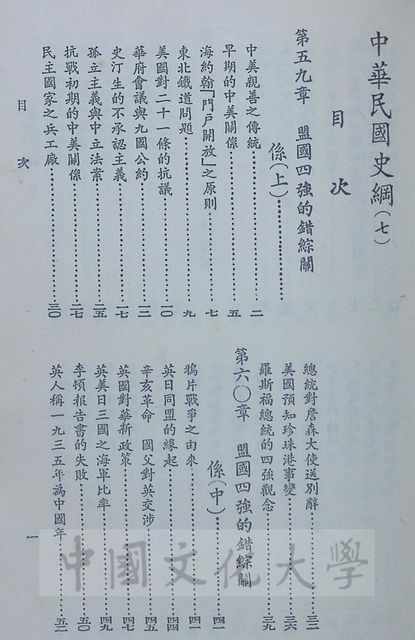 中華民國史綱(七)
目次
第五九章 盟國四強的錯綜關
係(上)
中美親善之傳統……二
早期的中美關係……五
海約翰「門戶開放」之原則……七
東北鐵道問題……九
美國對二十一條的抗議……一〇
華府會議與九國公約……一三
史汀生的不承認主義……一七
孤立主義與中立法案……二五
抗戰初期的中美關係……二七
民主國家之兵工廠……三〇
目次
總統對詹森大使送別辭……三二
美國預知珍珠港事變……三六
羅斯福總統的四強觀念……三九
第六〇章 盟國四強的錯綜關
係(中)……四一
鴉片戰爭之由來……四一
英日同盟的緣起……四四
辛亥革命 國父對英交涉……四五
英國對華新政策……四七
英美日三國之海軍比率……四九
李頓報告書的失敗……五〇
英人稱一九三五年為中國年……五二
一
中國文化大學